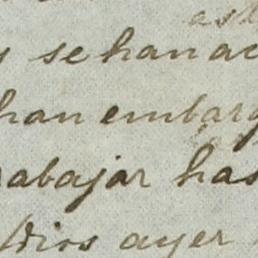 se han
han embarg
rabajar has
Dios ayer